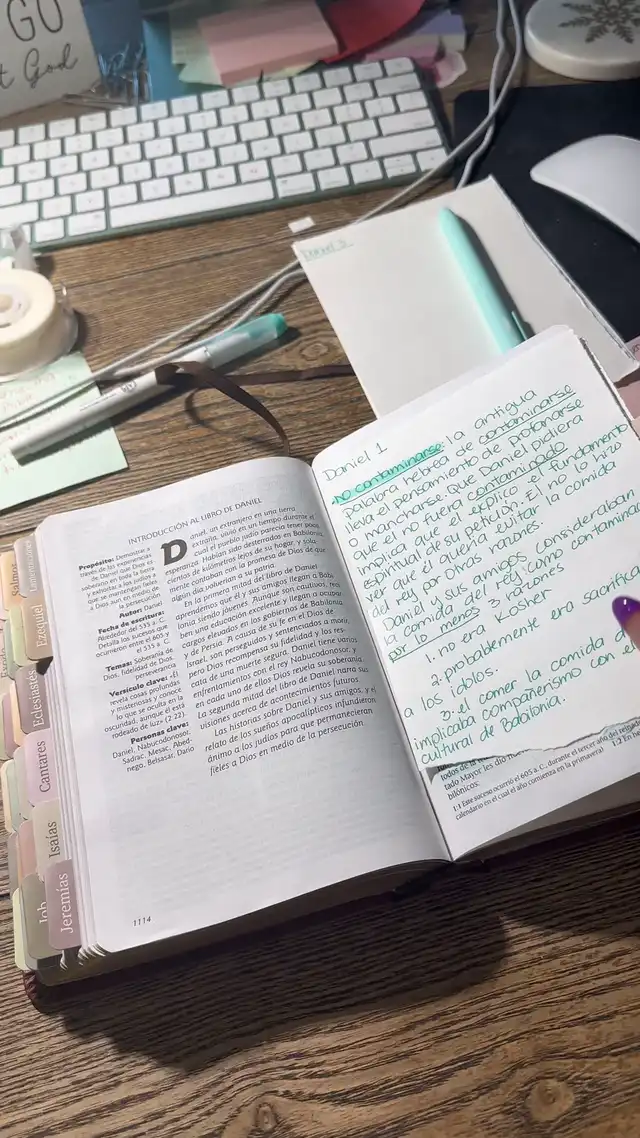 GO
God
Daniel
INTRODUCCIÓN AL LIBRO DE DANIEL
Propósito: Demostrar a
través de las experiencias
de Daniel que Dios es
soberano en toda la tierra
y exhortar a los judíos a
que se mantengan fieles
a Dios aun en medio de
la persecución
Autor: Daniel
Fecha de escritura:
Alrededor del 535 a. C.
Detalla los sucesos que
ocurrieron entre el 605 y
el 535 a. C.
Temas: Soberanía de
Dios, fidelidad de Dios,
perseverancia
Versículo clave: «Él
revela cosas profundas
y misteriosas y conoce
lo que se oculta en la
oscuridad, aunque él está
rodeado de luz» (2:22).
Personas clave:
Daniel, Nabucodonosor,
Sadrac, Mesac, Abed-
nego, Belsasar, Darío
Daniel, un extranjero en una tierra
extraña, vivió en un tiempo durante el
cual el pueblo judío parecía tener poca
esperanza. Habían sido desterrados en Babilonia,
cientos de kilómetros lejos de su hogar, y sola-
mente contaban con la promesa de Dios de que
algún día volverían a su patria.
En la primera mitad del libro de Daniel
aprendemos que él y sus amigos llegan a Babi-
lonia siendo jóvenes. Aunque son cautivos, reci-
ben una educación excelente y llegan a ocupar
cargos elevados en los gobiernos de Babilonia
y de Persia. A causa de su fe en el Dios de
Israel, son perseguidos y sentenciados a morir,
pero Dios recompensa su fidelidad y los res-
cata de una muerte segura. Daniel tiene varios
enfrentamientos con el rey Nabucodonosor, y
en cada uno de ellos Dios revela su soberanía.
La segunda mitad del libro de Daniel narra sus
visiones acerca de acontecimientos futuros.
Las historias sobre Daniel y sus amigos, y el
relato de los sueños apocalípticos infundieron
ánimo a los judíos para que permanecieran
fieles a Dios en medio de la persecución.
1114
Salmos
Lamentaciones
Ezequiel
Eclesiastés
Cantares
Isaías
Job
Jeremías
Daniel 1
no contaminarse: la antigua
palabra hebrea de contaminarse
lleva el pensamiento de profanarse
o mancharse. Que Daniel pidiera
que el no fuera contaminado
implica que el explico el fundamento
espiritual de su petición. El no lo hizo
ver que el quería evitar la comida
del rey por otras razones.
Daniel y sus amigos consideraban
la comida del rey como contamina
por lo menos 3 razones
1. no era Kosher
2. probablemente era sacrifica
a los idolos.
3. el comer la comida d
implicaba compañerismo con el
cultural de Babilonia.
todos de la
tado Mayor les dio
bilónicos:
1:1 Este suceso ocurrió el 605 a. C., durante el tercer año del reinado
calendario en el cual el año comienza en la primavera) 1:3 En he